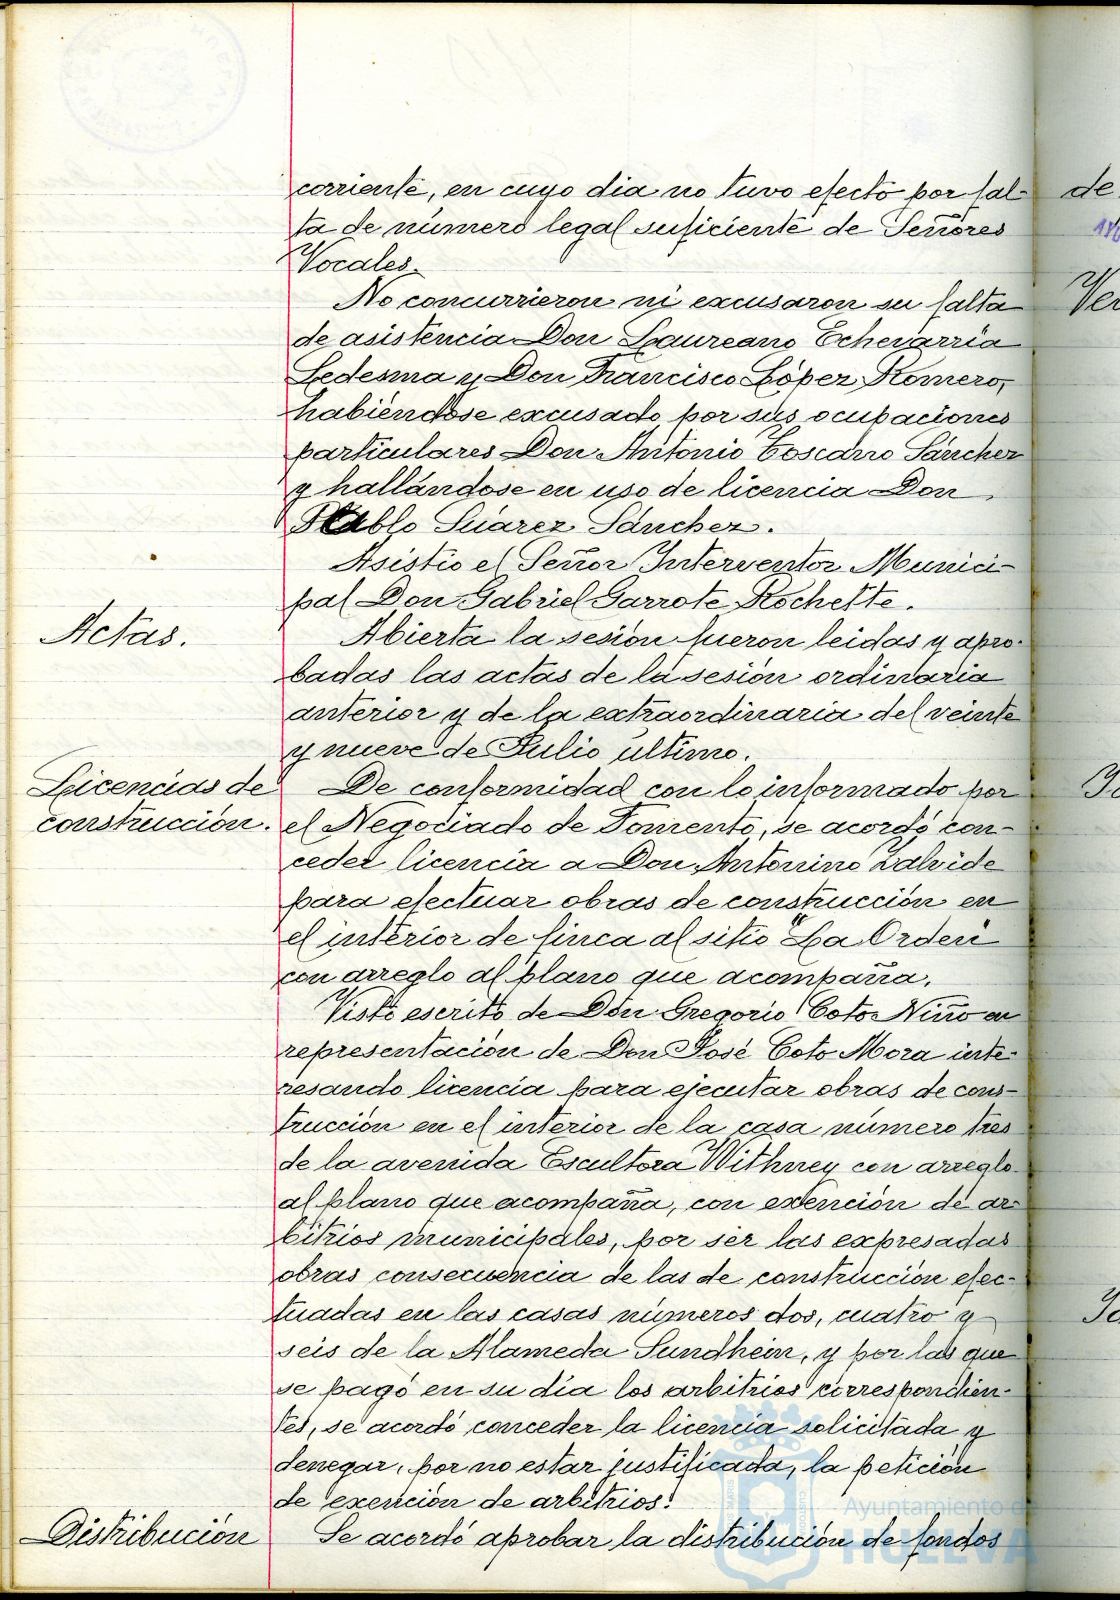 corriente, en cuyo dia no tuvo efecto por fal-
ta de número legal suficiente de Señores
Vocales.
No concurrieron ni excusaron su falta
de asistencia Don Laureano Echevarria
Ledesma y Don Francisco López Romero,
habiéndose excusado por sus ocupaciones
particulares Don Antonio Toscano Sánchez
y hallándose en uso de licencia Don
Pablo Suárez Sánchez.
Asistio el Señor Interventor Munici-
pal Don Gabriel Garrote Rochette.
Actas.
Abierta la sesión fueron leidas y apro-
badas las actas de la sesión ordinaria
anterior y de la extraordinaria del veinte
y nueve de Julio último.
Licencias de
construcción.
De conformidad con lo informado por
el Negociado de Fomento, se acordó con-
ceder licencia a Don Antonino Zalvide
para efectuar obras de construcción en
el interior de finca al sitio "La Orden"
con arreglo al plano que acompaña.
Visto escrito de Don Gregorio Coto Niño en
representación de Don José Coto Mora inte-
resando licencia para ejecutar obras de cons-
trucción en el interior de la casa número tres
de la avenida Escultora Withney con arreglo
al plano que acompaña, con exención de ar-
bitrios municipales, por ser las expresadas
obras consecuencia de las de construcción efec-
tuadas en las casas números dos, cuatro y
seis de la Alameda Sundhein, y por las que
se pagó en su día los arbitrios correspondien-
tes, se acordó conceder la licencia solicitada y
denegar, por no estar justificada, la petición
de exención de arbitrios.
Distribución
Se acordó aprobar la distribución de fondos
de
Ver
Ayuntamiento de
HUELVA